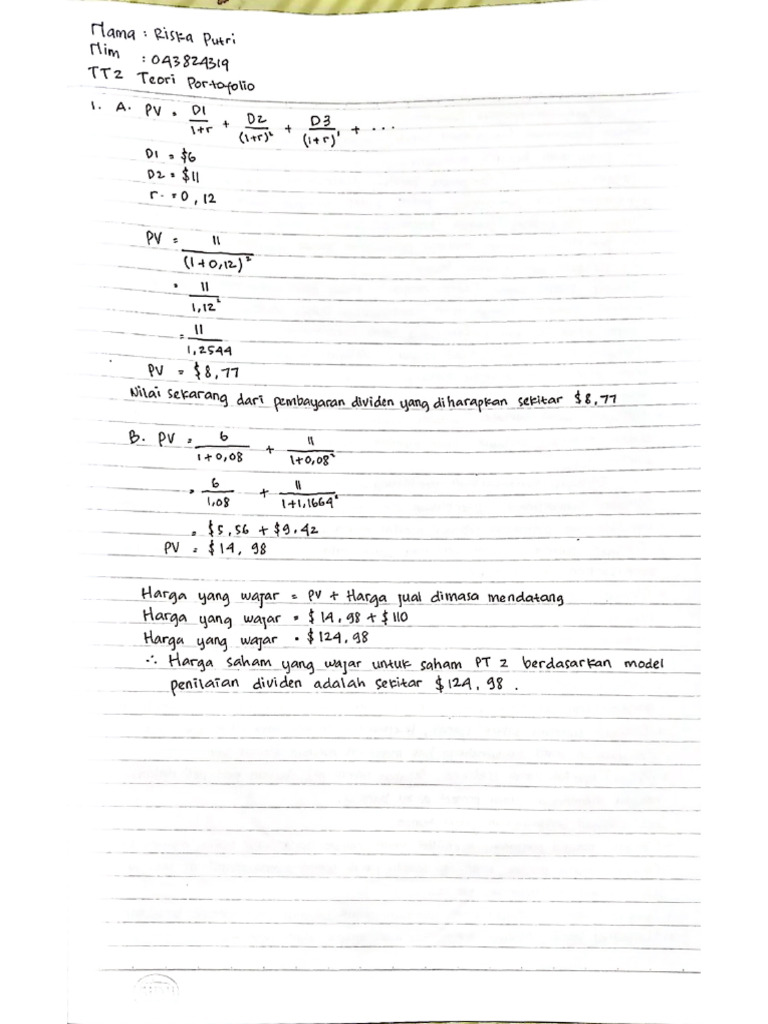 Nama : Riska Putri
Nim : 043824319
TT2 Teori Portofolio
1. A. PV = D1/1+r + D2/(1+r)² + D3/(1+r)³ + ...
D1 = $6
D2 = $11
r = 0,12
PV = 11/(1+0,12)²
= 11/1,12²
= 11/1,2544
PV = $8,77
Nilai sekarang dari pembayaran dividen yang diharapkan sekitar $8,77
B. PV = 6/1+0,08 + 11/1+0,08²
= 6/1,08 + 11/1+1,1664²
= $5,56 + $9.42
PV = $14,98
Harga yang wajar = PV + Harga jual dimasa mendatang
Harga yang wajar = $14,98 + $110
Harga yang wajar = $124,98
∴ Harga saham yang wajar untuk saham PT 2 berdasarkan model
penilaian dividen adalah sekitar $124,98.